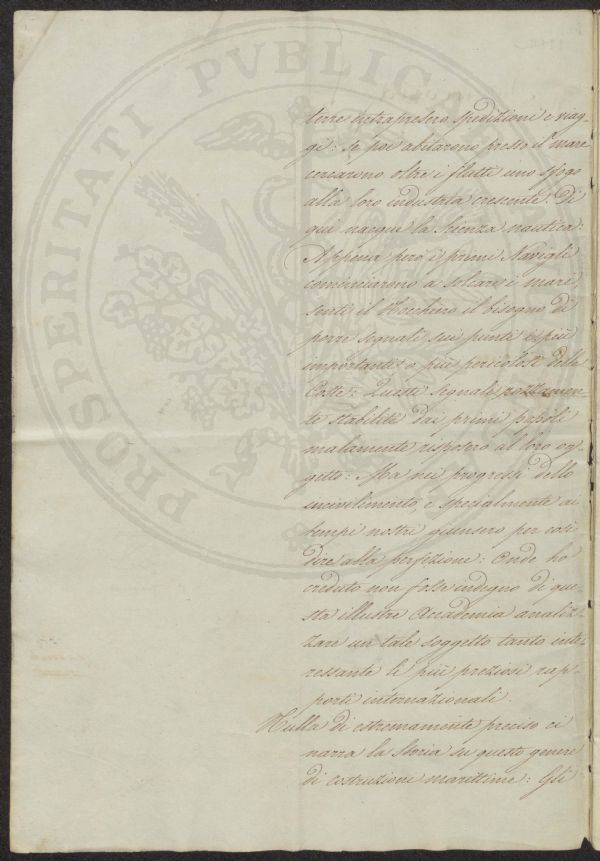 PROSPERITATI PVBLICAE
terre intrapresero spedizioni e viag-
gi: se poi abitarono presso il mare
cercarono oltre i flutti uno sfogo
alla loro industria crescente. Di
qui nacque la scienza nautica.
Appena però i primi Navigli
cominciarono a solcare i mari,
sentì il Nocchiero il bisogno di
porre segnali sui punti i più
importanti o più pericolosi delle
Coste. Questi segnali rozzamen-
te stabiliti dai primi popoli
malamente risposero al loro og-
getto: Ma nei progressi dello
incivilimento, e spezialmente ai
tempi nostri giunsero per così
dire alla perfezione: Onde ho
creduto non fosse indegno di que-
sta illustre Accademia analiz-
zare un tale soggetto tanto inte-
ressante li più preziosi rap-
porti internazionali.
Nulla di estremamente preciso ci
narra la Storia su questo genere
di costruzioni marittime: Gli